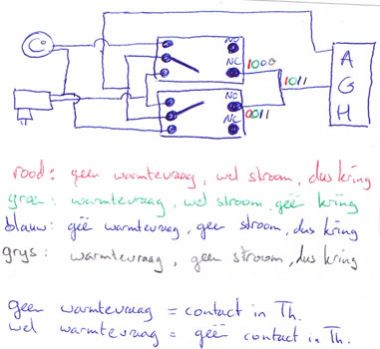 NO
NC
1000
NO
NC
0011
1011
A
G
H
rood: geen warmtevraag, wel stroom, dus kring
groen: warmtevraag, wel stroom, géén kring
blauw: géé warmtevraag, geen stroom, dus kring
grys: warmtevraag, geen stroom, dus kring
geen warmtevraag = contact in Th.
wel warmtevraag = géé contact in Th.